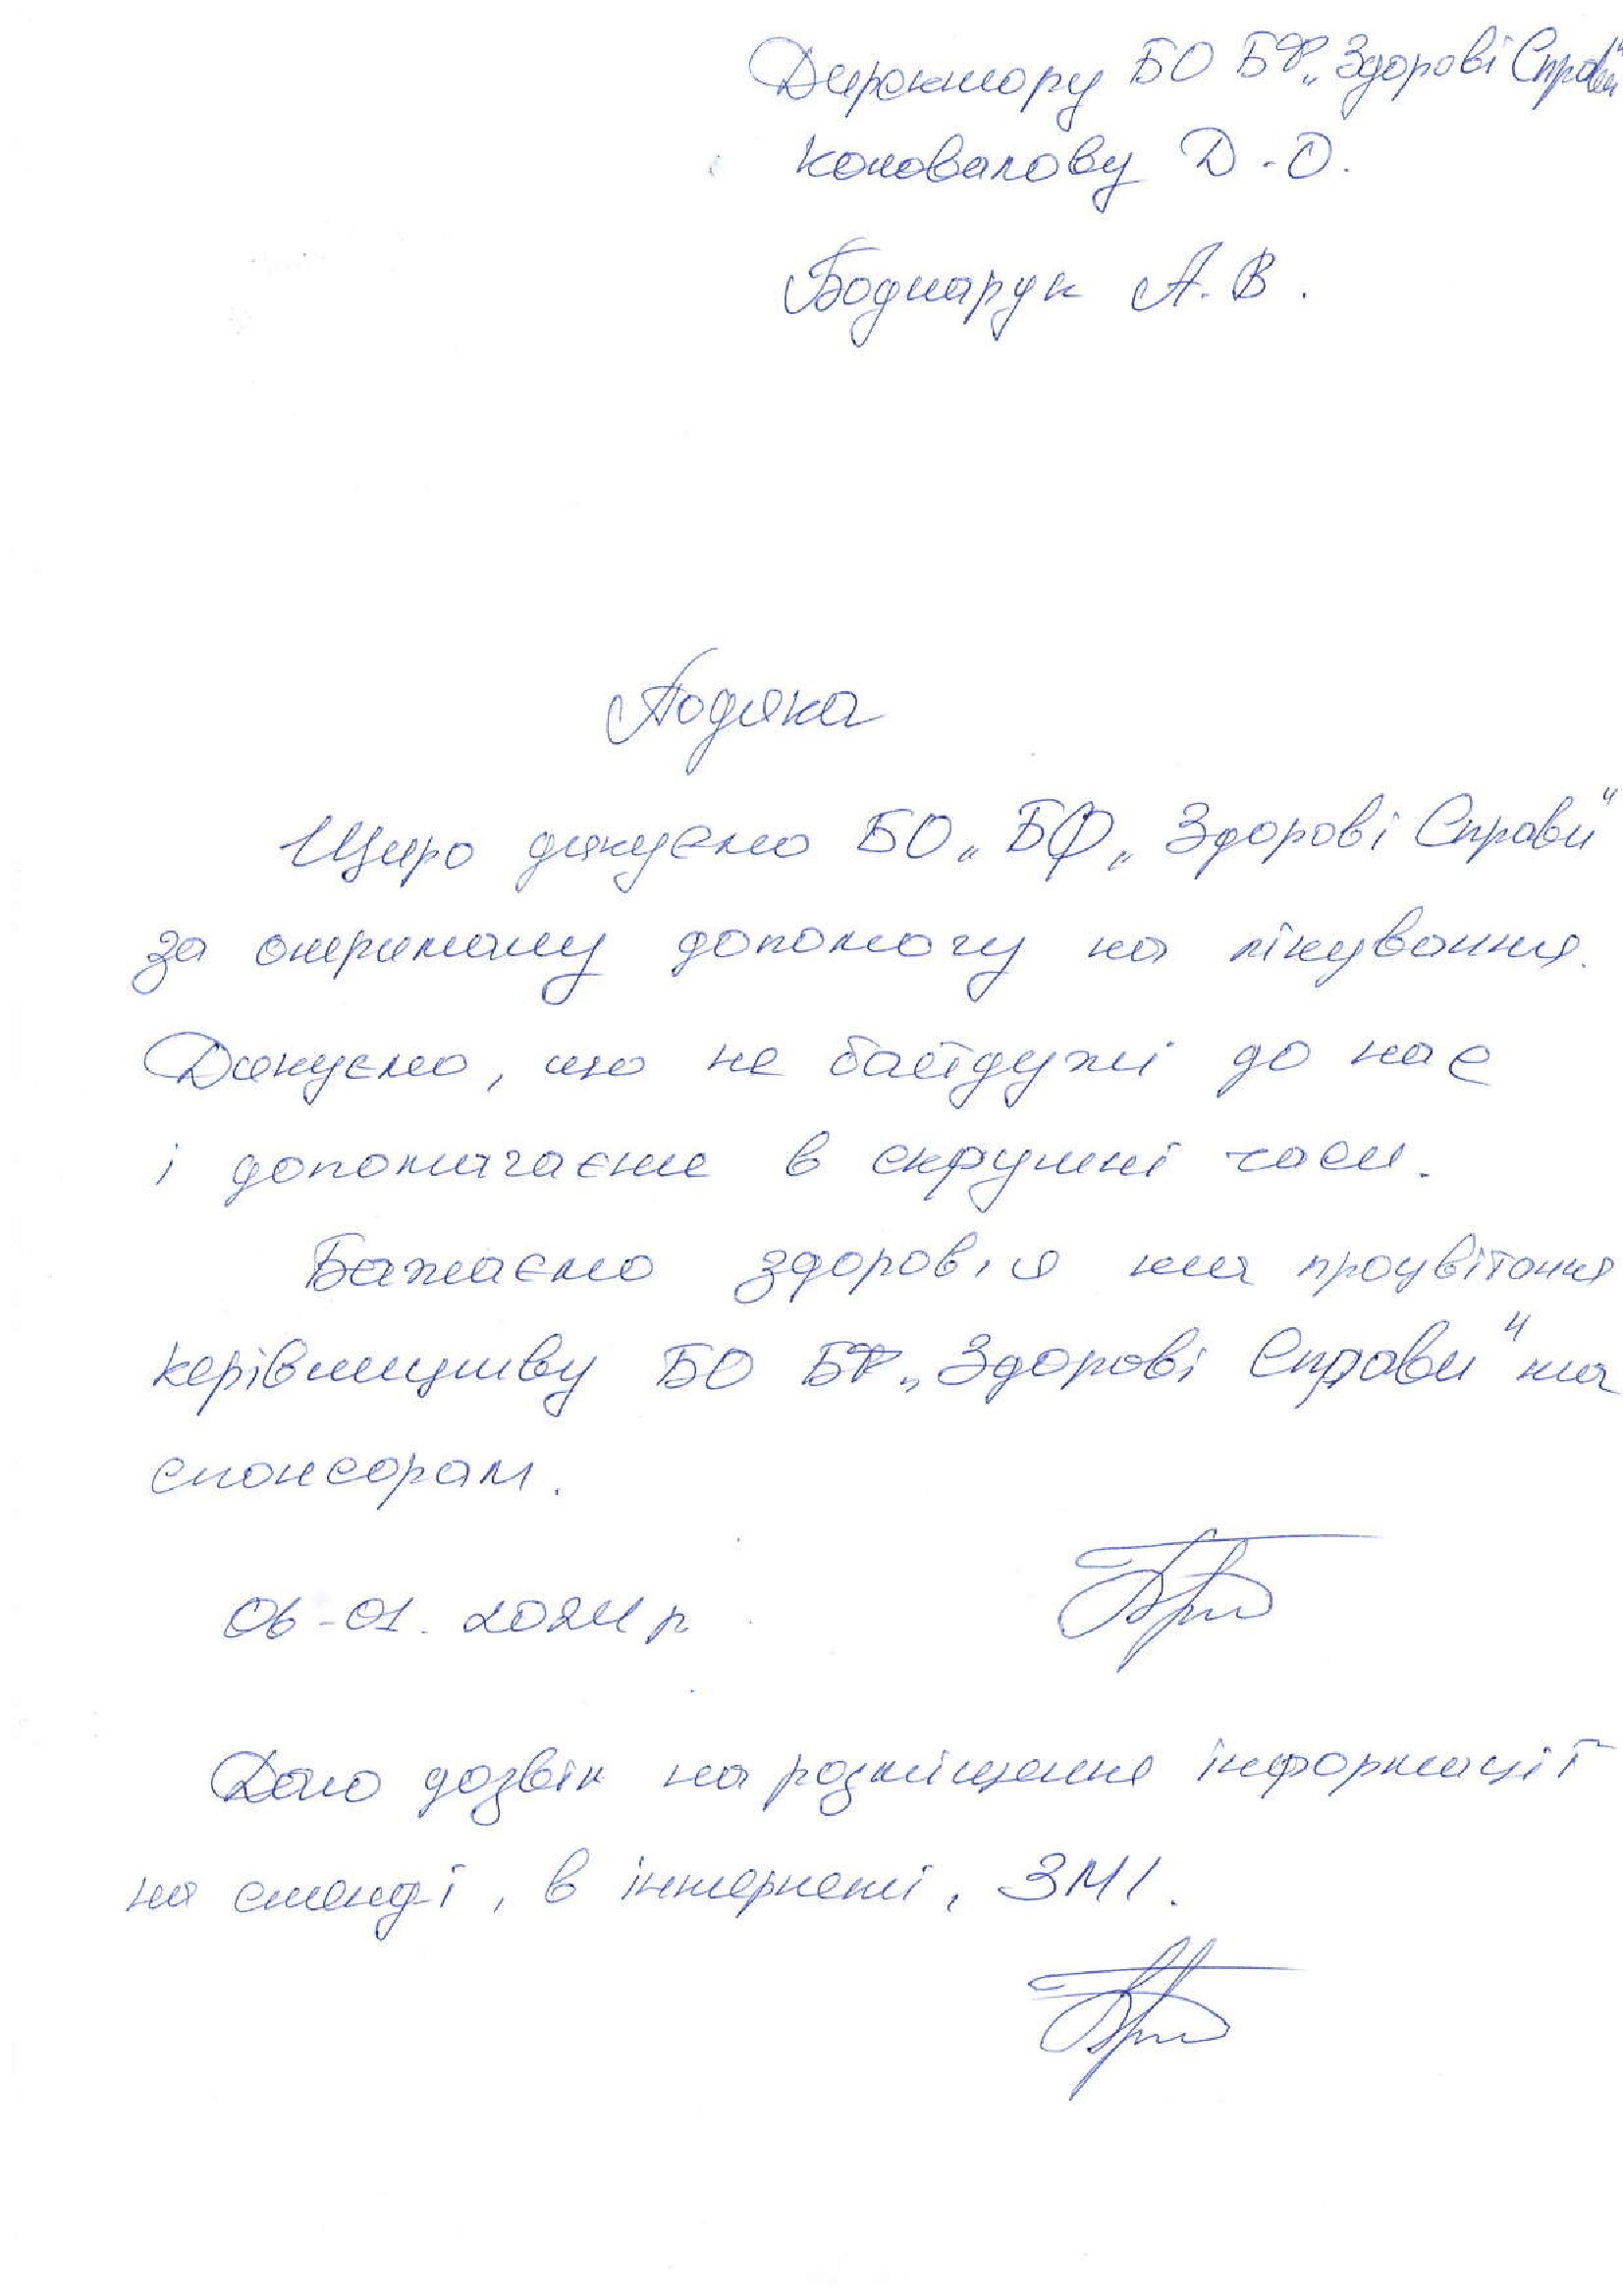 Директору БО БФ „Здорові Справи"
Коновалову Д.О.
Боднарук А.В.
Подяка
Щиро дякуємо БО „БФ „Здорові Справи"
за отриману допомогу на лікування.
Дякуємо, що не байдужі до нас
і допомагаєте в скрутні часи.
Бажаємо здоров'я та процвітання
керівництву БО БФ „Здорові Справи" та
спонсорам.
06-01.2024р.
Даю дозвіл на розміщення інформації
на стенді, в інтернеті, ЗМІ.